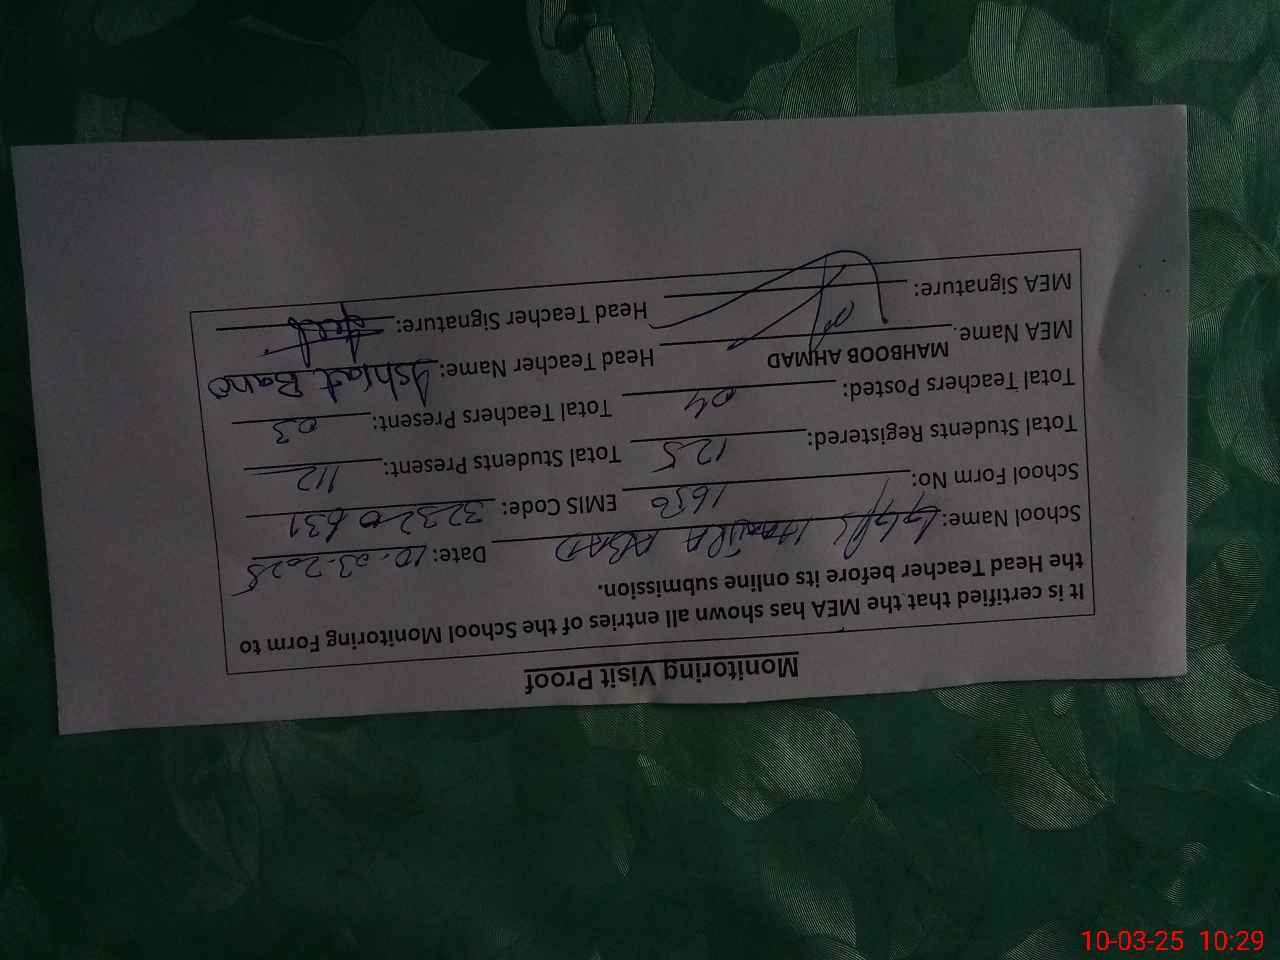 Monitoring Visit Proof
It is certified that the MEA has shown all entries of the School Monitoring Form to
the Head Teacher before its online submission.
School Name: ABAD Date: 10.03.2025
School Form No: 1650 EMIS Code: 32320631
Total Students Registered: 125 Total Students Present: 112
Total Teachers Posted: 04 Total Teachers Present: 03
MEA Name. MAHBOOB AHMAD Head Teacher Name: Ishrat Bano
MEA Signature: Head Teacher Signature:
10-03-25 10:29